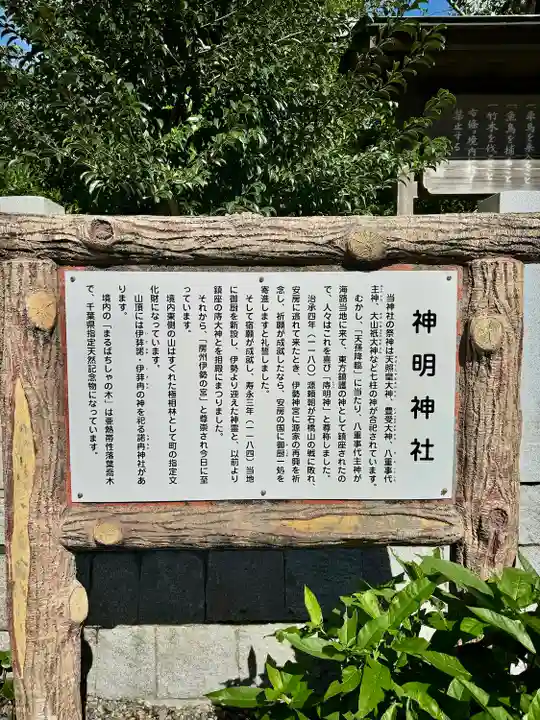 神明神社
当神社の祭神は天照皇大神、豊受大神、八重事代
主神、大山祇大神など七柱の神が合祀されています。
むかし、「天孫降臨」に当たり、八重事代主神が
海路当地に来て、東方鎮護の神として鎮座されたの
で、人々はこれを喜び「庤明神」と尊称しました。
治承四年（一一八〇）源頼朝が石橋山の戦に敗れ、
安房に逃れて来たとき、伊勢神宮に源家の再興を祈
念し、祈願が成就したなら、安房の国に御厨一処を
寄進しますと礼誓しました。
そして宿願が成就し、寿永三年（一一八四）当地
に御厨を新設し、伊勢より迎えた神霊と、以前より
鎮座の庤大神とを担殿にまつりました。
それから、「房州伊勢の宮」と尊崇され今日に至
っています。
境内東側の山はすぐれた極相林として町の指定文
化財になっています。
山頂には伊弉諾・伊弉冉の神を祀る諾冉神社があ
ります。
境内の「まるばちしゃの木」は亜熱帯性落葉高木
で、千葉県指定天然記念物になっています。
一魚鳥を捕
一竹木を伐